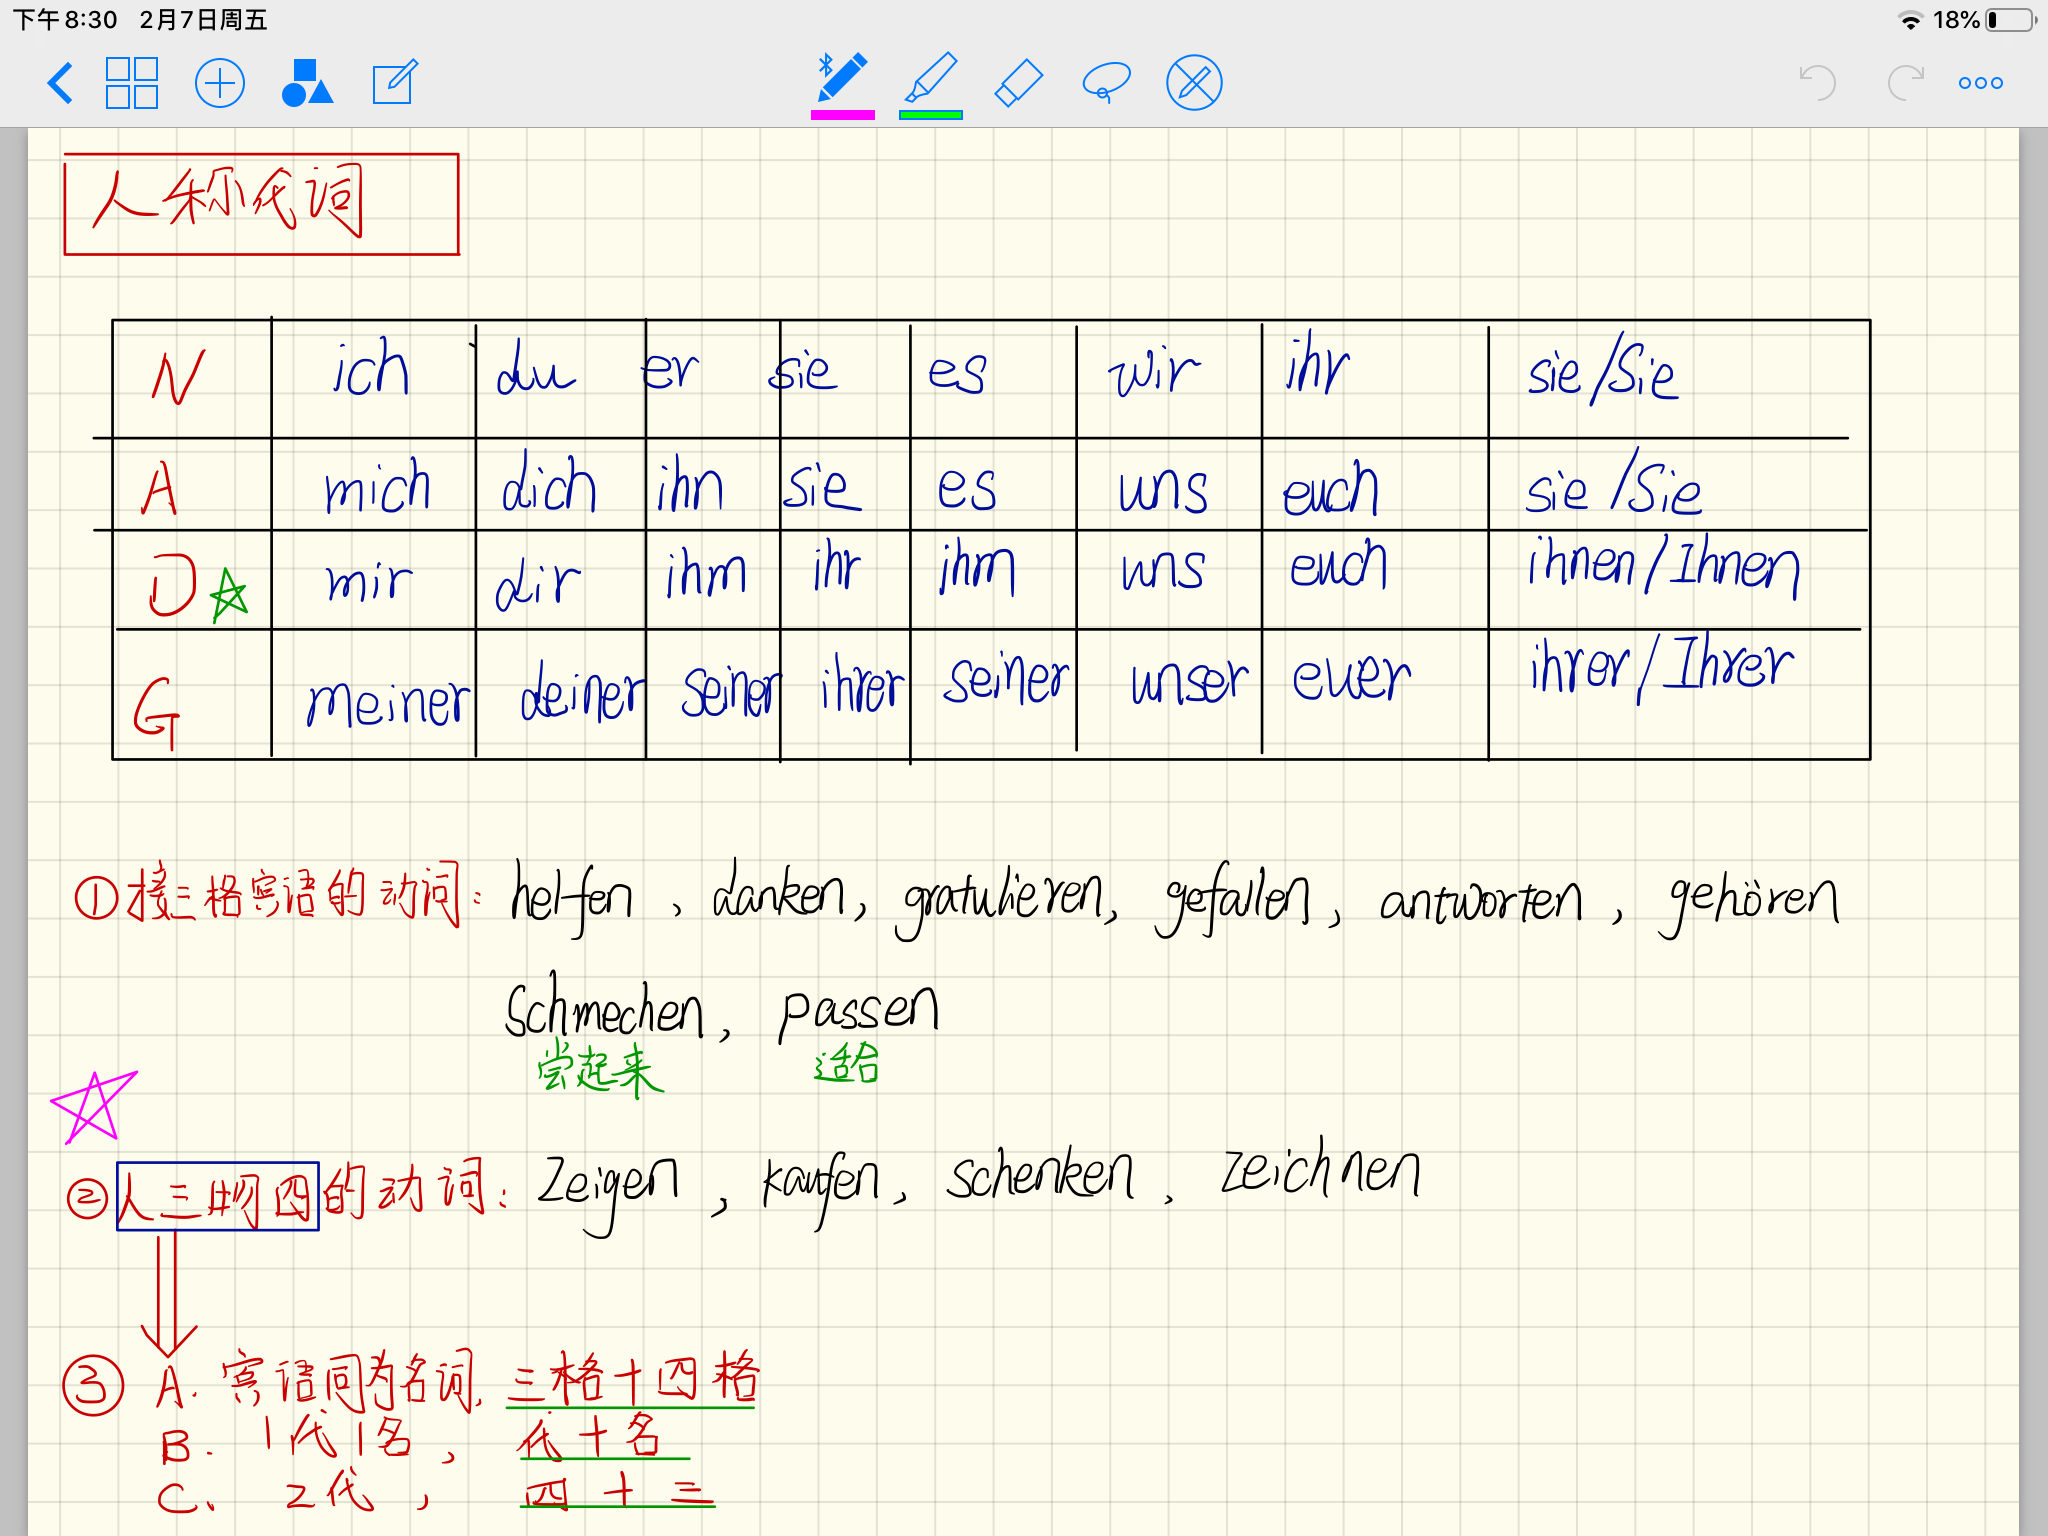 下午8:30 2月7日周五 18%
人称代词
N ich du er sie es wir ihr sie/Sie
A mich dich ihn sie es uns euch sie/Sie
D mir dir ihm ihr ihm uns euch ihnen/Ihnen
G meiner deiner seiner ihrer seiner unser euer ihrer/Ihrer
①接三格宾语的动词: helfen、danken, gratulieren, gefallen, antworten, gehören
Schmechen, passen
尝起来 适合
②人三物四的动词: Zeigen, kaufen, schenken, Zeichnen
③ A. 宾语同为名词, 三格+四格
B. 1代1名, 代+名
C. 2代, 四+三